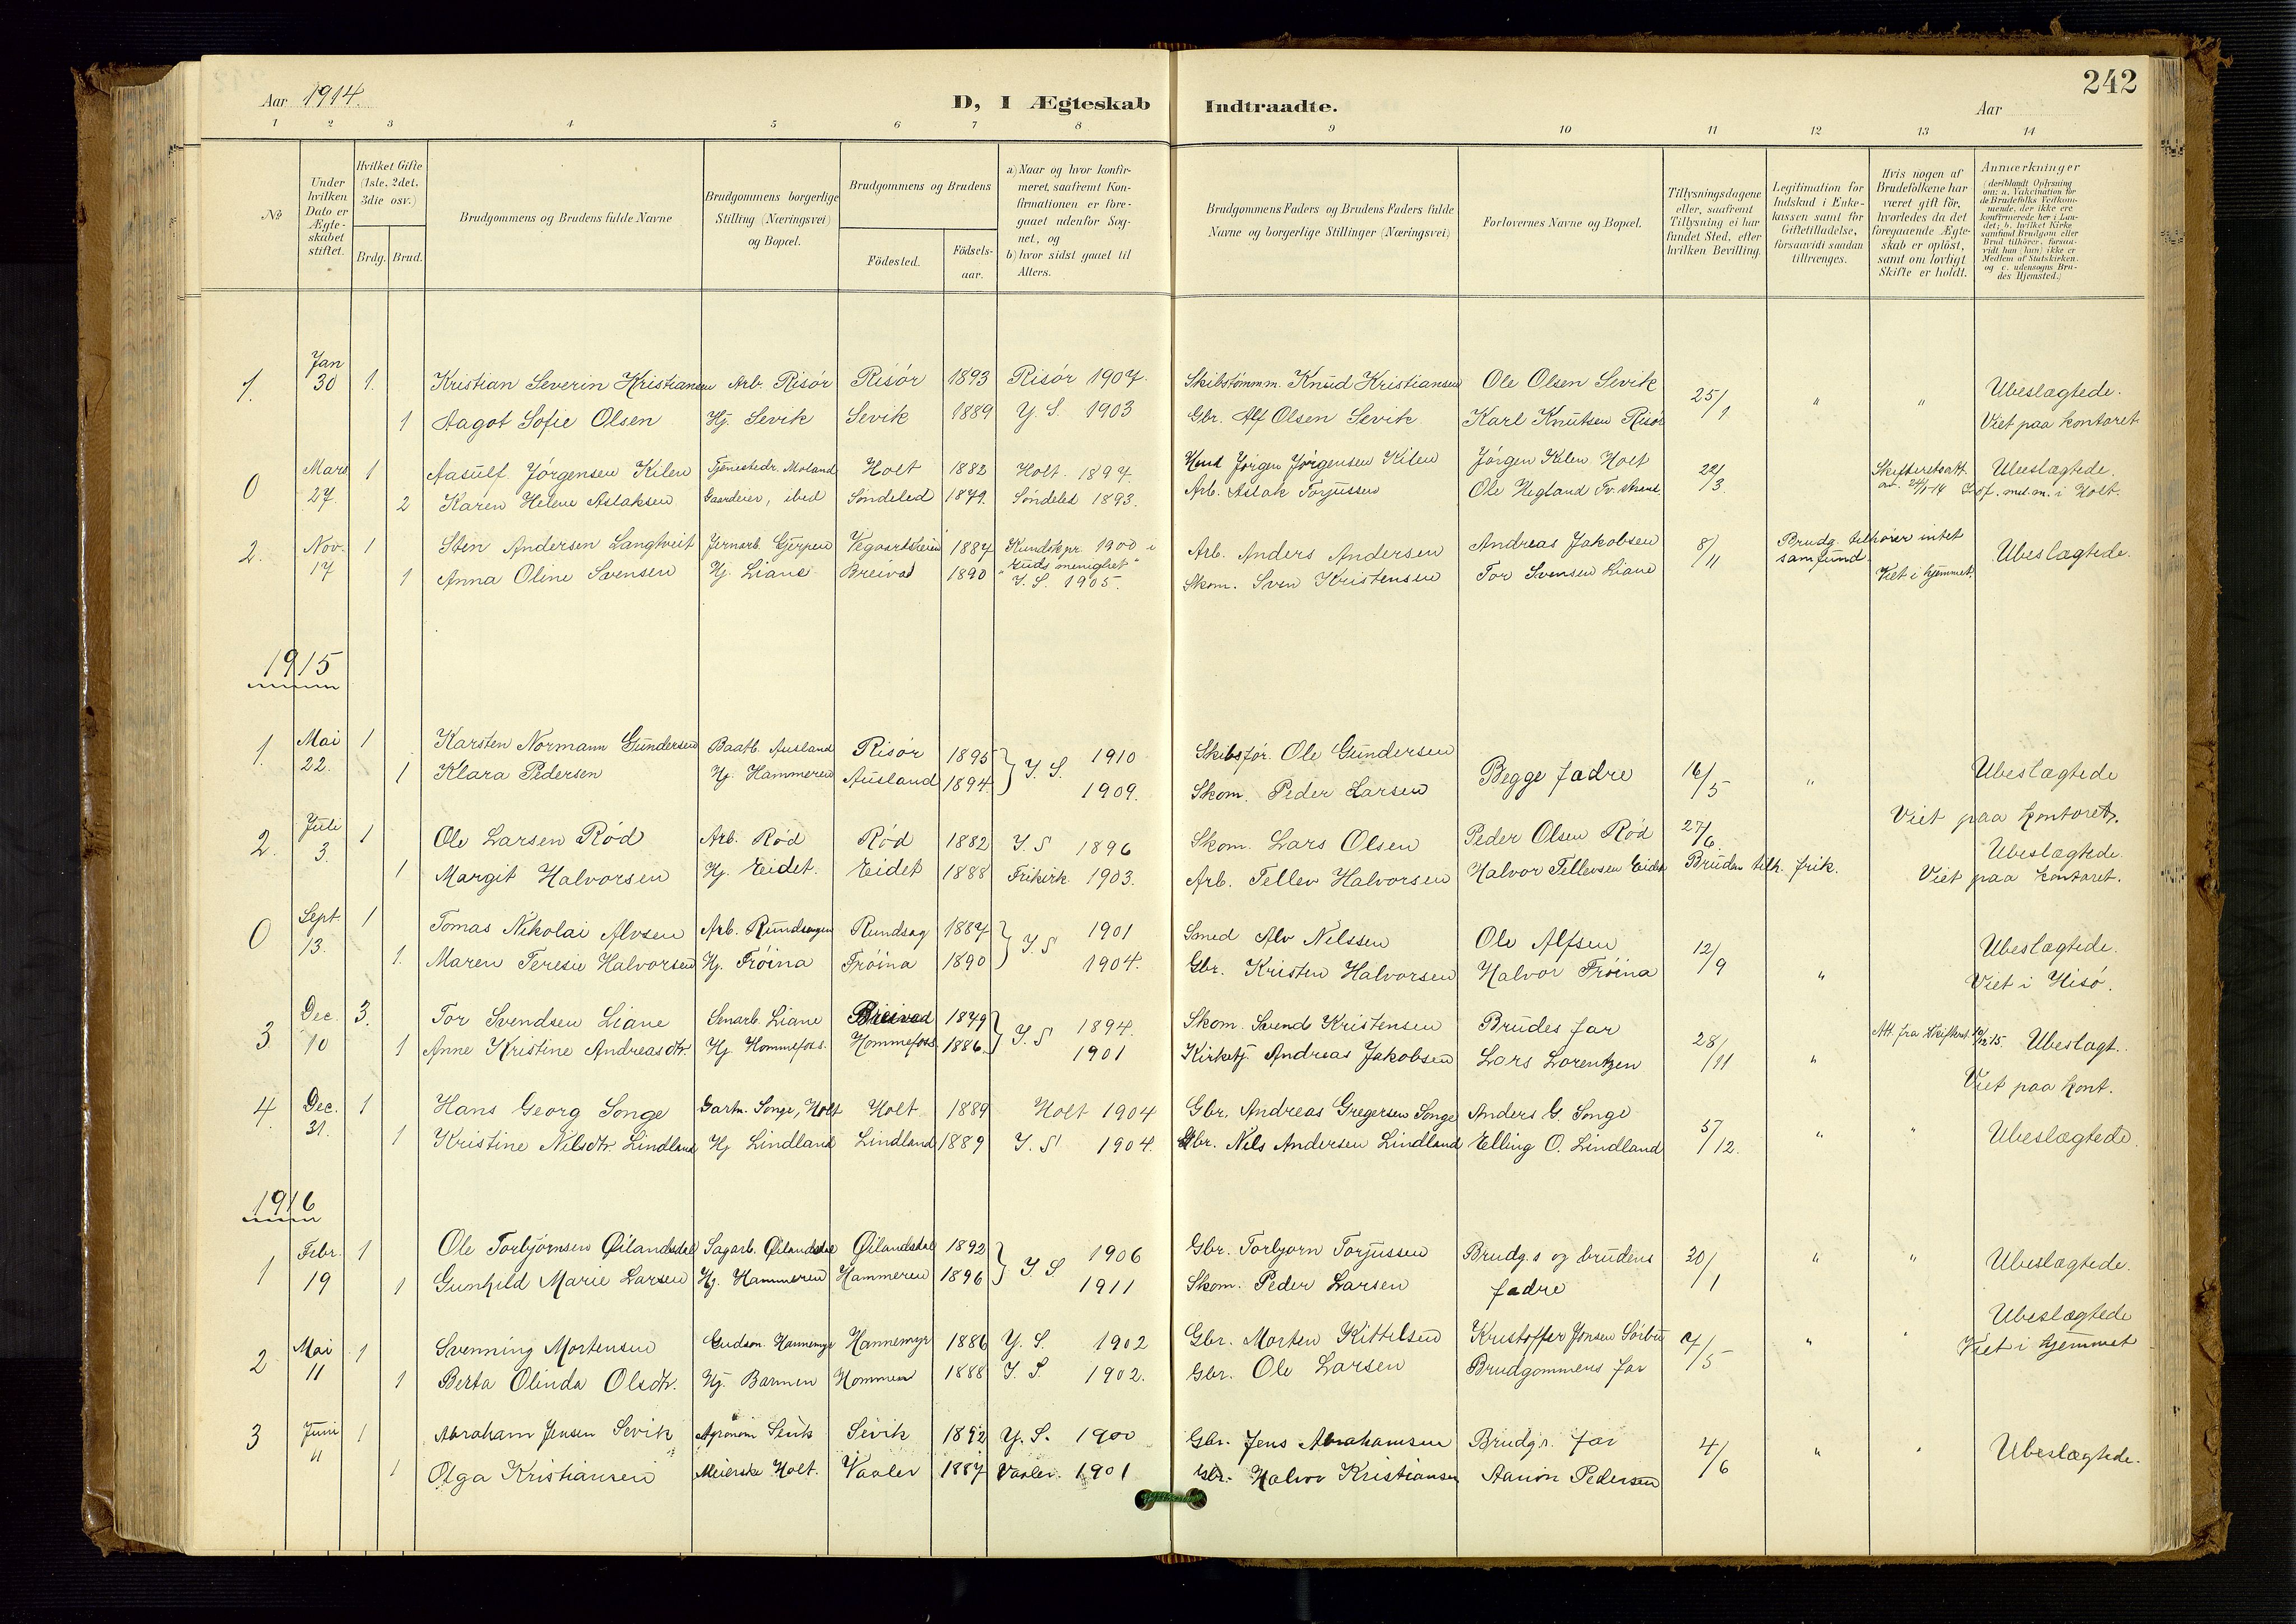 242
Aar 1914.
D, I Ægteskab Indtraadte.
Aar
1 2 3 4 5 6 7 8 9 10 11 12 13 14
No
Under hvilken Dato er Ægteskabet stiftet.
Hvilket Gifte (1ste, 2det, 3die osv.)
Brdg. Brud.
Brudgommens og Brudens fulde Navne
Brudgommens borgerlige Stilling (Næringsvei) og Bopæl.
Brudgommens og Brudens
Födested.
Födsels-aar.
a) Naar og hvor konfirmeret, saafremt Konfirmationen er foregaaet udenfor Sognet, og
b) hvor sidst gaaet til Alters.
Brudgommens Faders og Brudens Faders fulde Navne og borgerlige Stillinger (Næringsvei)
Forlovernes Navne og Bopæl.
Tillysningsdagene eller, saafremt Tillysning ei har fundet Sted, efter hvilken Bevilling.
Legitimation for Indskud i Enkekassen samt for Giftetilladelse, forsaavidt saadan tiltrænges.
Hvis nogen af Brudefolkene har været gift för, hvorledes da det foregaaende Ægteskab er oplöst, samt om lovligt Skifte er holdt.
Anmærkninger
(deriblandt Oplysning om: a. Vakcination for de Brudefolks Vedkommende, der ikke ere konfirmerede her i Landet; b. hvilket Kirkesamfund Brudgom eller Brud tilhörer, forsaavidt han (hun) ikke er Medlem af Statskirken. og c. udensogns Brudes Hjemsted.)
1. Jan 30 1. Kristian Severin Kristiansen Arb. Risör Risör 1893 Risör 1907. Skibstömmm. Knud Kristiansen Ole Olsen Sevik 25/1 " " Ubeslægtede.
1 Aagot Sofie Olsen Hj. Sevik Sevik 1889 Y. S. 1903 Gbr. Alf Olsen Sevik Karl Knutsen Risör Viet paa kontoret.
0 Mars 27. 1 Aasulf Jörgensen Kilen Tjenestedr. Moland Holt 1882 Holt. 1897. Jörgen Jörgensen Kilen Jörgen Kilen Holt 22/3 Ubeslægtede.
2 Karen Helene Aslaksen Gaardeier, ibid Söndeled 1879. Söndeled 1893. Arb. Aslak Torjussen Ole Hegland i Holt.
2. Nov. 17 1 Sten Andersen Langtveit Jernarb. Gjerpen Vegaardsheien 1887 1900 i Arb. Anders Andersen Andreas Jakobsen 8/11 Brudg. tilhører intet samfund. Ubeslægtede.
"Guds menighet"
1 Anna Oline Svensen Hj. Liane Breivad 1890 Y. S. 1905. Skom. Sven Kristensen Tor Svensen Liane Viet i hjemmet.
1915
1. Mai 22. 1 Karsten Normann Gundersen Baatb. Ausland Risör 1895 Y. S. 1910 Skibsför. Ole Gundersen Begge fædre 16/5 " Ubeslægtede
1 Klara Pedersen Hj. Hammeren Ausland 1894 1909. Skom. Peder Larsen Viet paa kontoret.
2. Juli 3. 1 Ole Larsen Röd Arb. Röd Röd 1882 Y. S 1896 Skom. Lars Olsen Peder Olsen Röd 27/6 Ubeslægtede.
1 Margit Halvorsen Hj. Eidet. Eidet 1888 Frikirk 1903. Arb. Tellev Halvorsen Halvor Tellevsen Eidet Bruden tilh. frik. Viet paa kontoret.
0 Sept. 13. 1 Tomas Nikolai Alvsen Arb. Rundsag 1887 Y. S 1901 Smed Alv Nelssen Ole Alfsen 12/9 Ubeslægtede.
1. Maren Teresie Halvorsen Hj. Fröina Fröina 1890 1904. Gbr. Kristen Halvorsen Halvor Fröina " Viet i Hisö.
3 Dec. 10 3. Tor Svendsen Liane Liane Breivad 1879 Y. S 1894. Skom. Svend Kristensen Brudes far 28/11 Att. fra Skifteret 15. Ubeslægt.
1 Anne Kristine Andreasdtr. Hj. Hommefoss. Hommefoss 1886. 1901 Kirketj. Andreas Jakobsen Lars Lorentzen " Viet paa kont.
4. Dec. 31. 1 Hans Georg Songe Gartn. Songe, Holt Holt 1889 Holt 1904 Gbr. Andreas Gregersen Songe Anders G. Songe 5/12. " " Ubeslægtede.
1 Kristine Nilsdtr. Lindland Hj Lindland Lindland 1889 Y. S 1904. Gbr. Nils Andersen Lindland Elling O. Lindland
1916
1 Febr. 19 1 Ole Torbjörnsen Öilandsdal Sagarb. Öilandsdal Öilandsdal 1892 Y S 1906 Gbr. Torbjorn Torjussen Brudg.s og brudens fædre 30/1 " " Ubeslægtede.
1 Gunhild Marie Larsen Hj. Hammeren Hammeren 1896 1911 Skom. Peder Larsen
2 Mai 11 1 Svenning Mortensen Hannemyr Hannemyr 1886 Y. S. 1902 Gbr. Morten Kittelsen Kristoffer Jensen Sörbö 7/5 " " Ubeslægtede
1 Berta Olinda Olsdtr. Hj. Barmen Hommen 1888 Y. S. 1902. Gbr. Ole Larsen Brudgommens far Viet i hjemmet
3 Juni 11 1 Abraham Jensen Sevik Agronom Sevik Sevik 1892 Y. S. 1900 Gbr. Jens Abrahamsen Brudg.s. far 4/6 " " Ubeslægtede.
1 Olga Kristiansen Meierske Holt. Vaaler 1887 Vaaler. 1901 Gbr. Halvor Kristiansen Aanon Pedersen